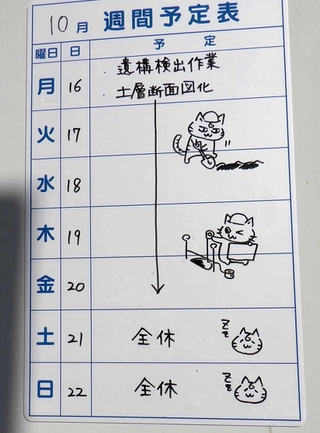 10月 週間予定表
曜日 日 予定
月 16 ・遺構検出作業
・土層断面図化
火 17
水 18
木 19
金 20
土 21 全休 zzz
日 22 全休 zzz